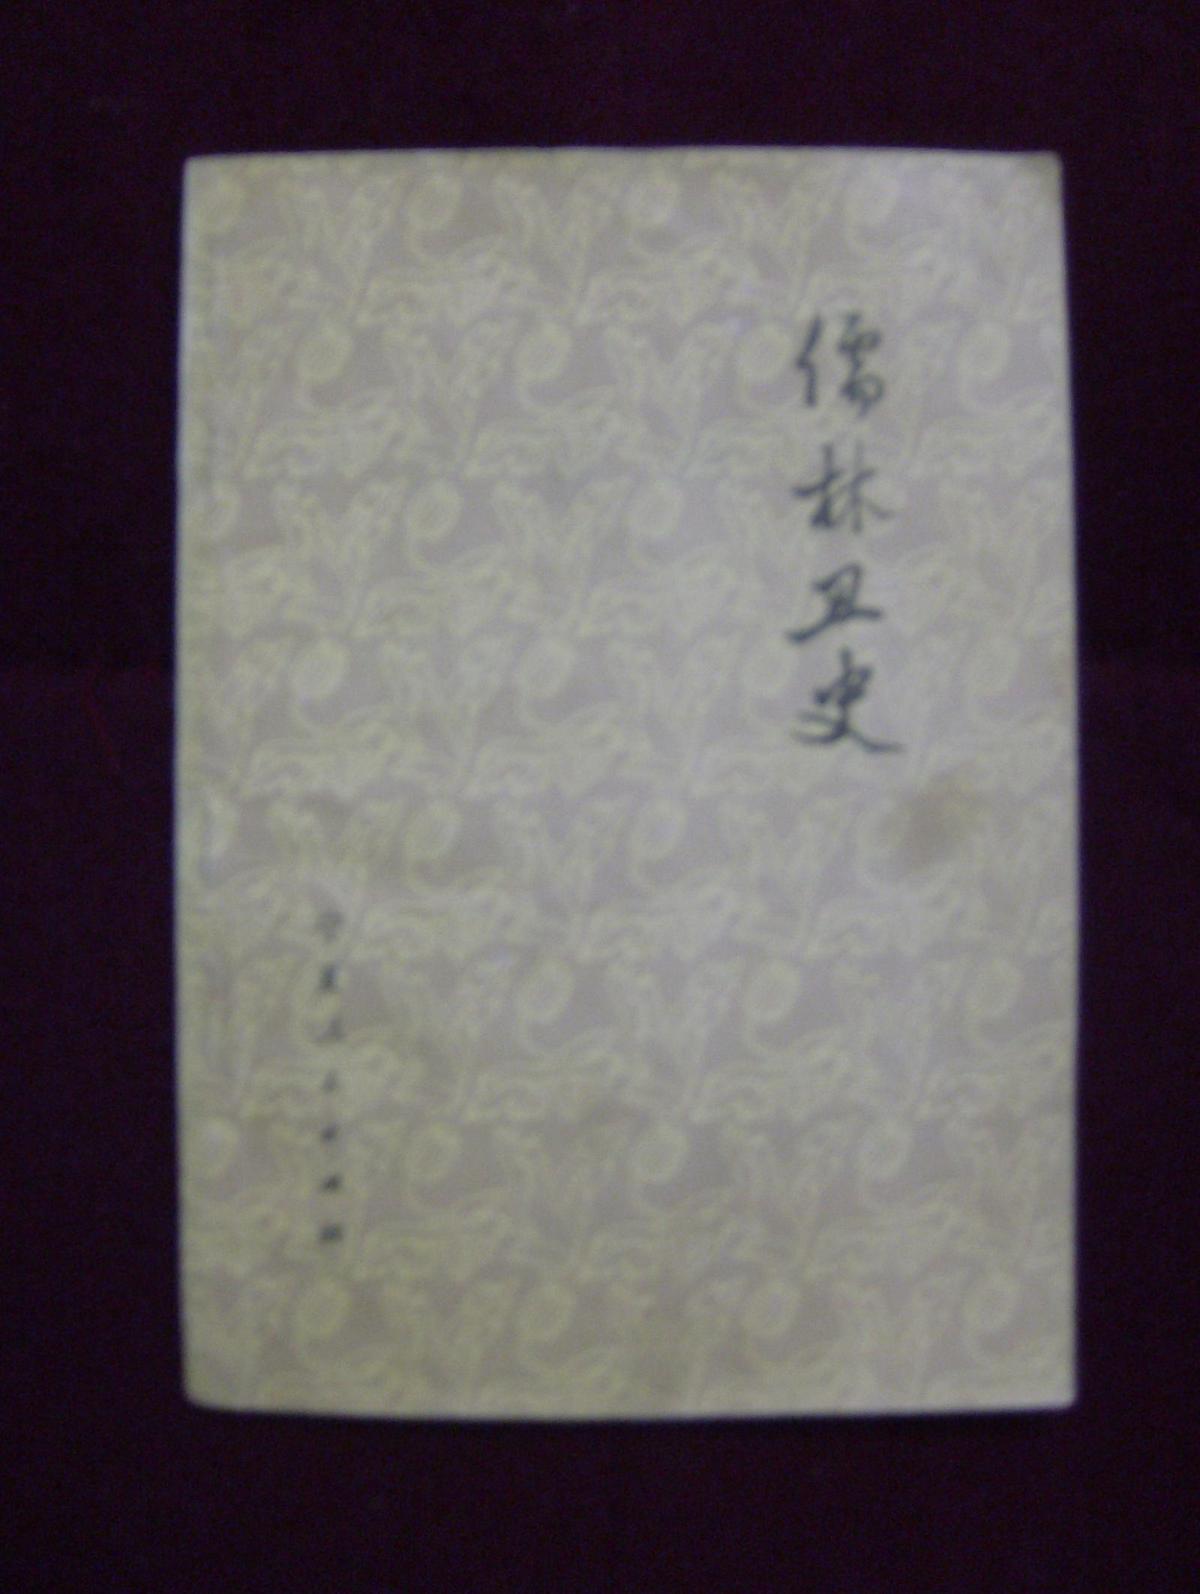 儒林丑史
宁夏人民出版社